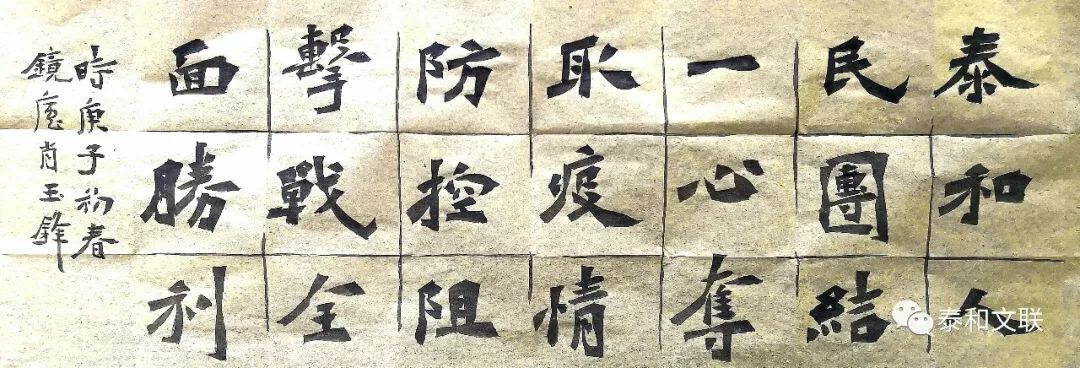 泰和人
民團結
一心奪
取疫情
防控阻
擊戰全
面勝利
時庚子初春
鏡肖玉鋒
泰和文联